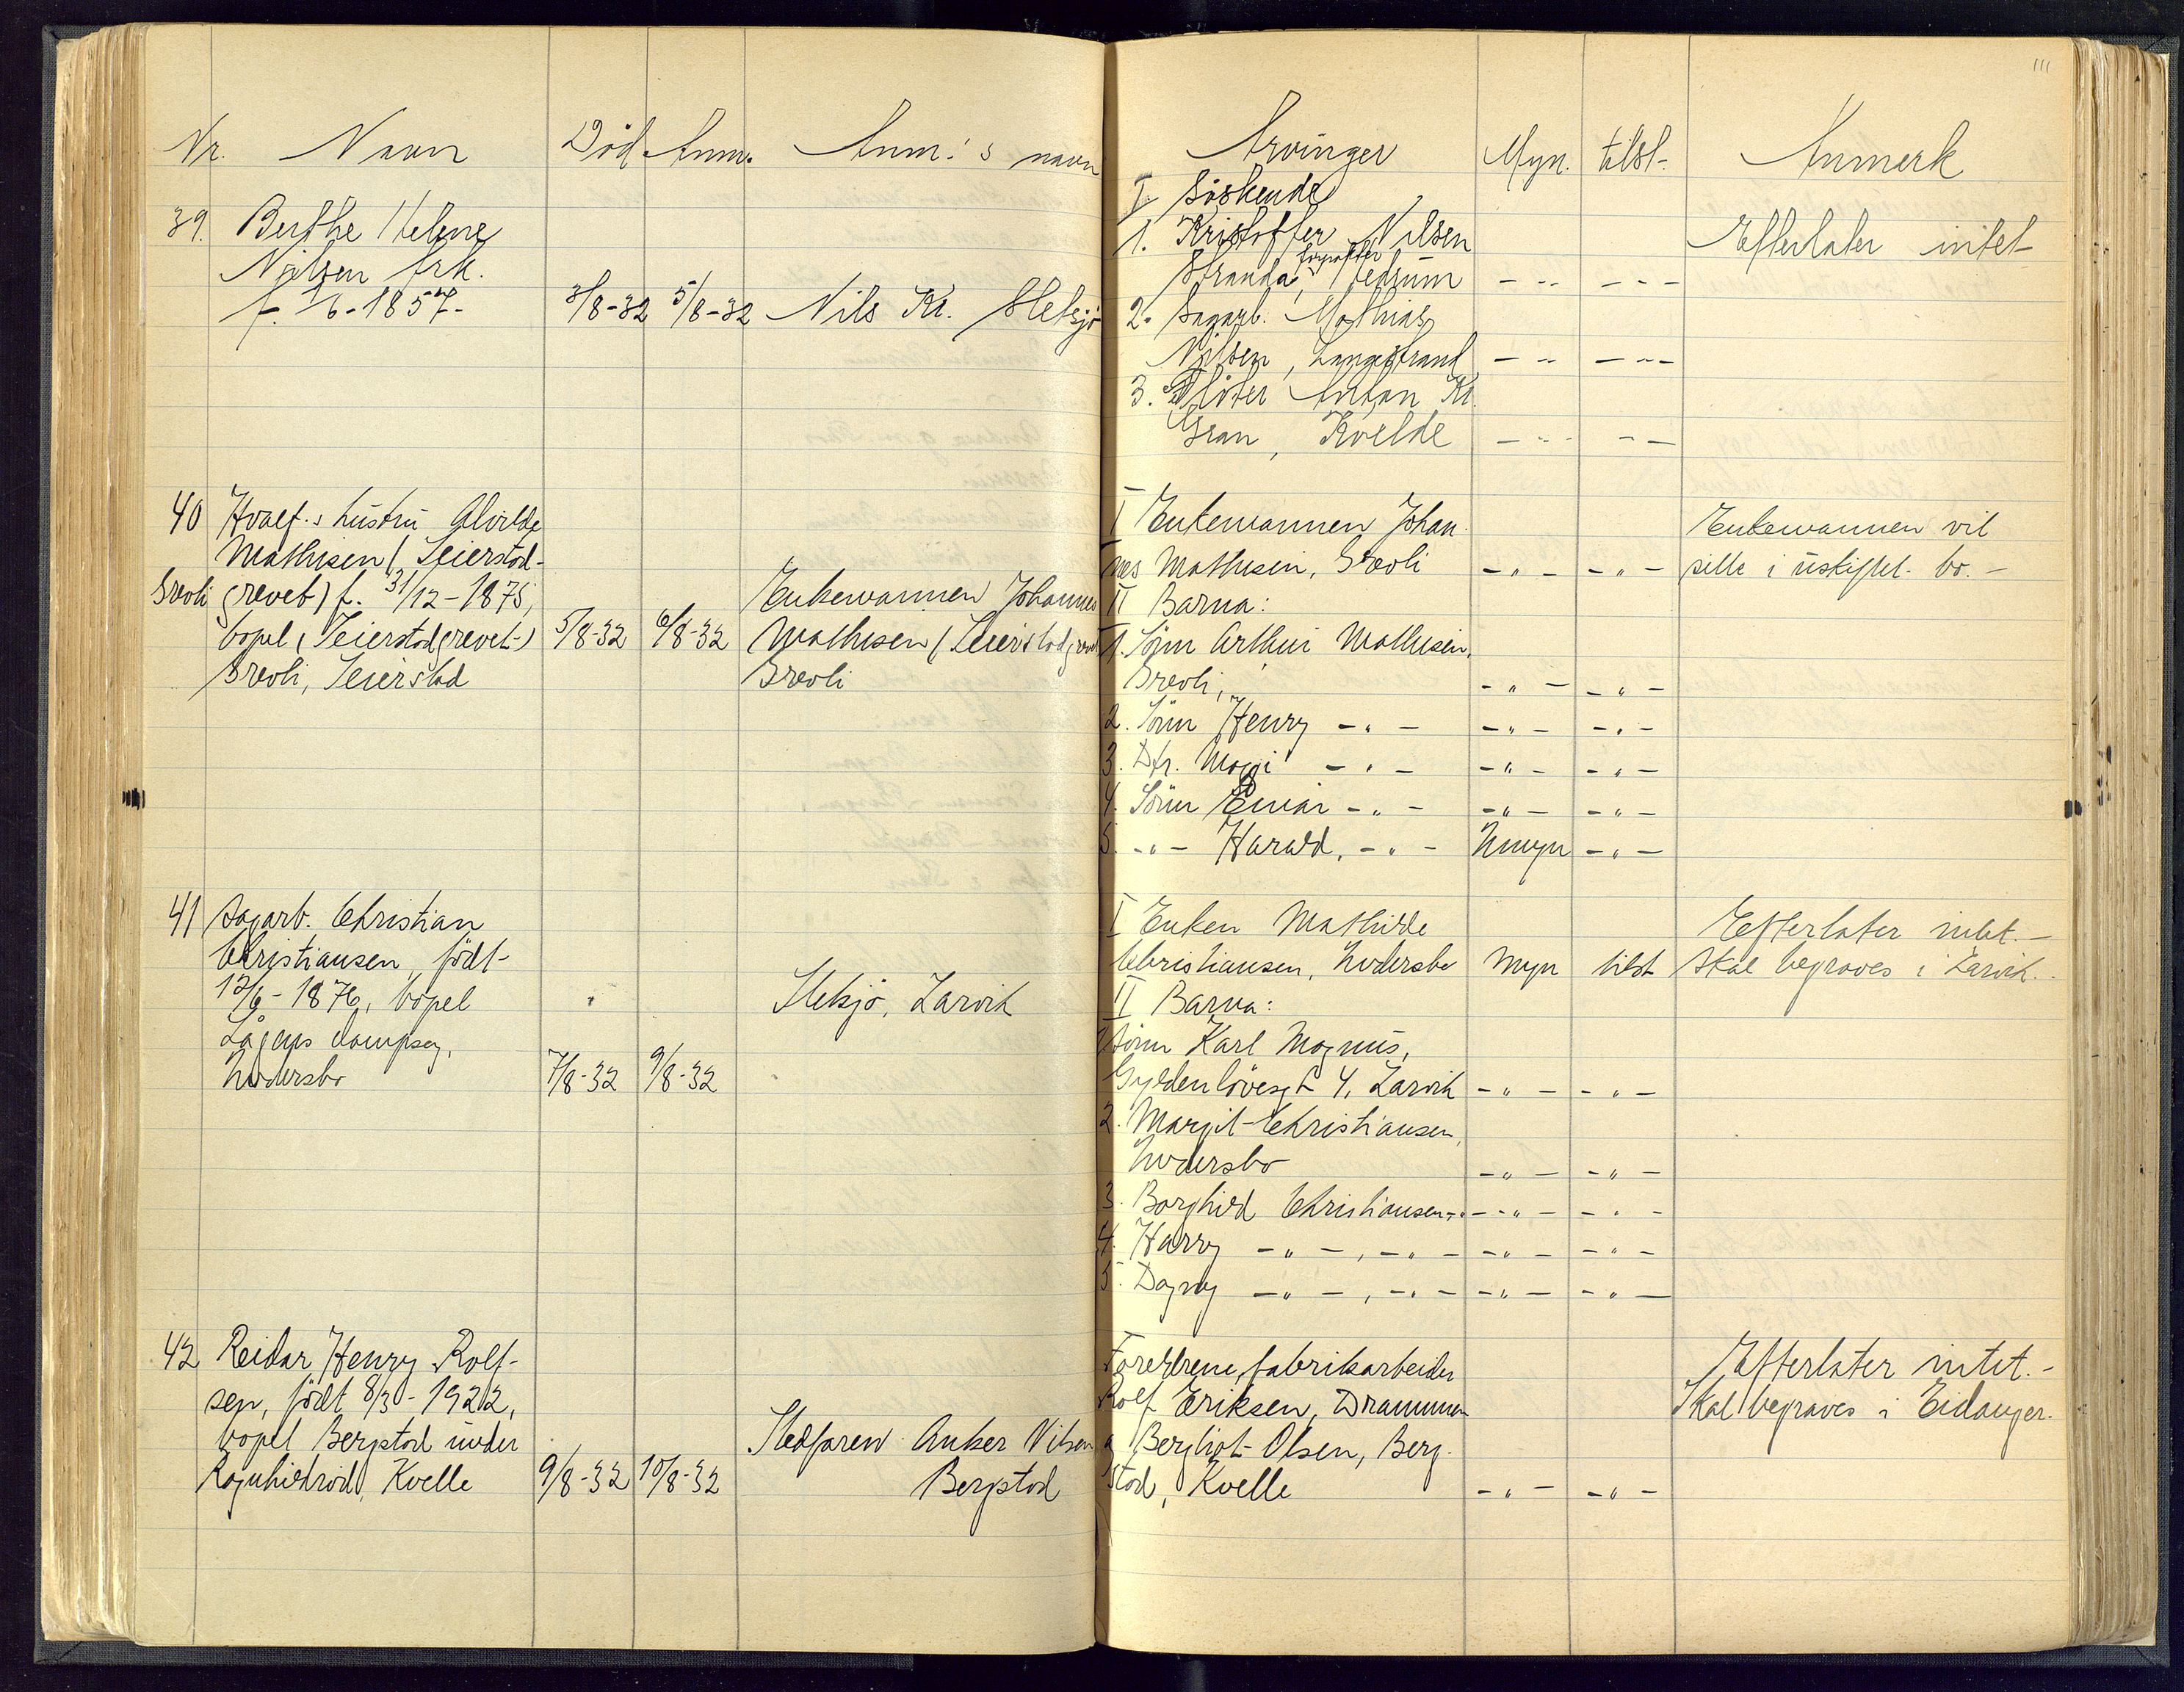 111
Nr. Navn Död Anm. Anm.'s navn
39. Berthe Helene
Nilsen frk.
f. 1/6-1857- 3/8-32 5/8-32 Nils Kr. Sletsjö
40 Hvalf.s hustru Alvilde
Mathisen (Seierstad-
Sreoli grevet) f. 31/12-1875,
bopel (Seierstadgrevet) 5/8-32 6/8-32
Sreoli, Seierstad
Enkemannen Johannes
Mathisen (Seierstadgrevet
Sreoli
41 Sagarb. Christian
Christiansen, född-
12/6-1876, bopel
Lågens dampsag,
7/8-32 9/8-32
Sletsjö, Larvik
42 Reidar Henry Rolf-
sen, född 8/3-1922,
bopel Bergstad under
Ragnhildröd, Kvelle 9/8-32 10/8-32
Stedfaren Anker Nilsen
Bergstad
Arvinger Myn. tilst- Anmerk
I. Söskende
1. Kristoffer Nilsen Efterlater intet
Stranda, forpakter, Hedrum - " - - " -
2. Sagarb. Mathias
Nilsen, Langestrand - " - - " -
3. Flöter Anton Kr.
Gran, Kvelde - " - - " -
I Enkemannen Johan- Enkemannen vil
nes Mathisen, Sreoli - " - - " - sitte i uskiftet bo. -
II Barna:
1. Sönn Arthur Mathisen,
Sreoli, - " - - " -
2. Sönn Henry - " - - " - - " -
3. Dtr. Maggi - " - - " - - " -
4. Sönn Einar - " - - " - - " -
5. - " - Harald, - " - Umyn - " -
I Enken Mathilde Efterlater intet. -
Christiansen, Myn tilst Skal begraves i Larvik.
II Barna:
1 Sönn Karl Magnus,
Gyldenlövesgt 4, Larvik - " - - " -
2. Margit Christiansen,
- " - - " -
3. Borghild Christiansen - " - - " - - " -
4. Harry - " -, - " - - " - - " -
5. Dagny - " -, - " - - " - - " -
Foreldrene, fabrikarbeider Efterlater intet. -
Rolf Eriksen, Drammen Skal begraves i Eidanger.
og Bergliot Olsen, Berg-
stad, Kvelle - " - - " -